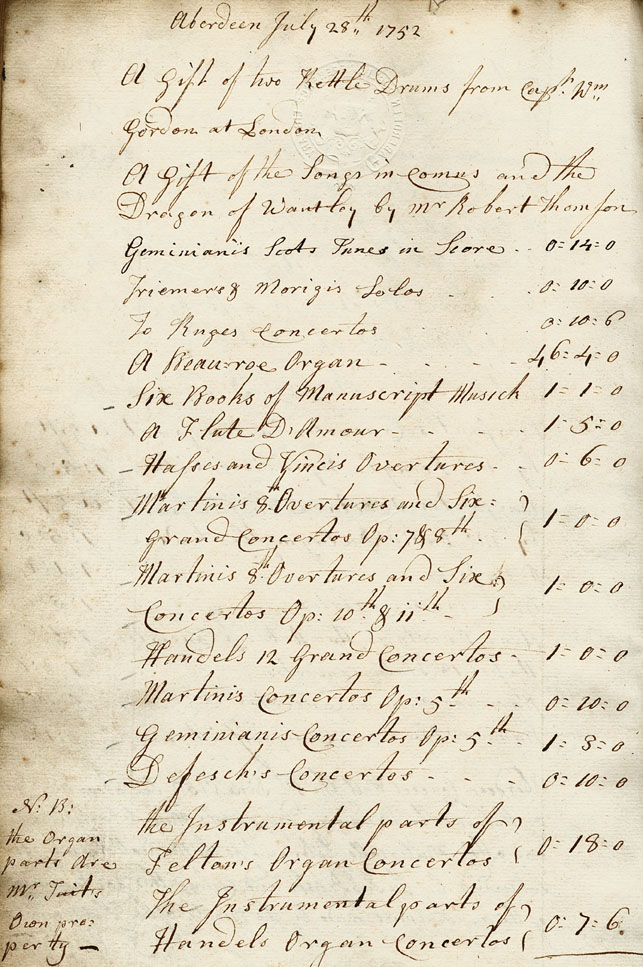 Aberdeen July 28th 1752
A Gift of two Kettle Drums from Capt. Wm
Gordon at London
A Gift of the Songs in Comus and the
Dragon of Wantley by Mr Robert Thomson
Geminianis Scots Tunes in Score - - 0=14=0
Triemers & Morigis Solos - - - 0=10=0
To Ruges Concertos - - 0=10=6
A Beau-roe Organ - - - - - 46=4=0
- Six Books of Manuscript Musick 1=1=0
A Flute D'Amour - - - - 1=5=0
- Hasses and Vincis Overtures - - 0=6=0
- Martinis 8 Overtures and Six=
Grand Concertos Op: 7 & 8th - } 1=0=0
- Martinis 8th Overtures and Six=
Concertos Op: 10th & 11th - } 1=0=0
- Handels 12 Grand Concertos - - 1=0=0
- Martinis Concertos Op: 5th - - 0=10=0
- Geminianis Concertos Op: 5th - 1=3=0
- Defesch's Concertos - - - - 0=10=0
the Instrumental parts of
Felton's Organ Concertos } 0=18=0
The Instrumental parts of
Handels Organ Concertos } 0=7=6
N: B:
the Organ
parts are
Mr. Taits
Own pro=
perty -